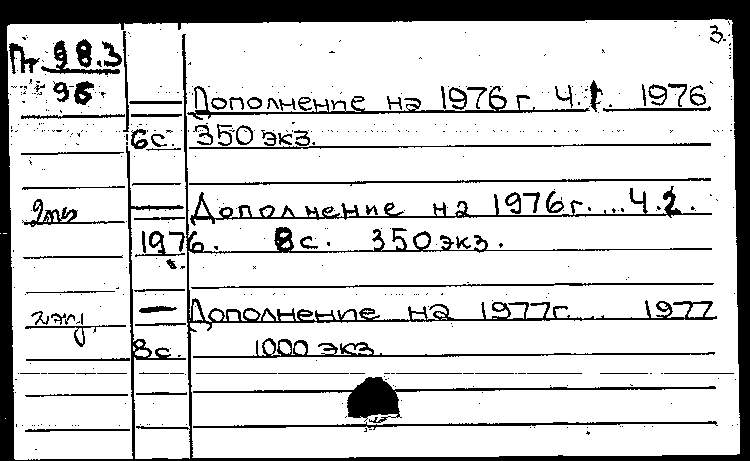 3.
Пт 98.3
96
— Дополнение на 1976 г. Ч.1. 1976
6с. 350 экз.
2экз — Дополнение на 1976г. ... Ч.2.
1976. 8с. 350 экз.
— Дополнение на 1977г. .. 1977
8с. 1000 экз.